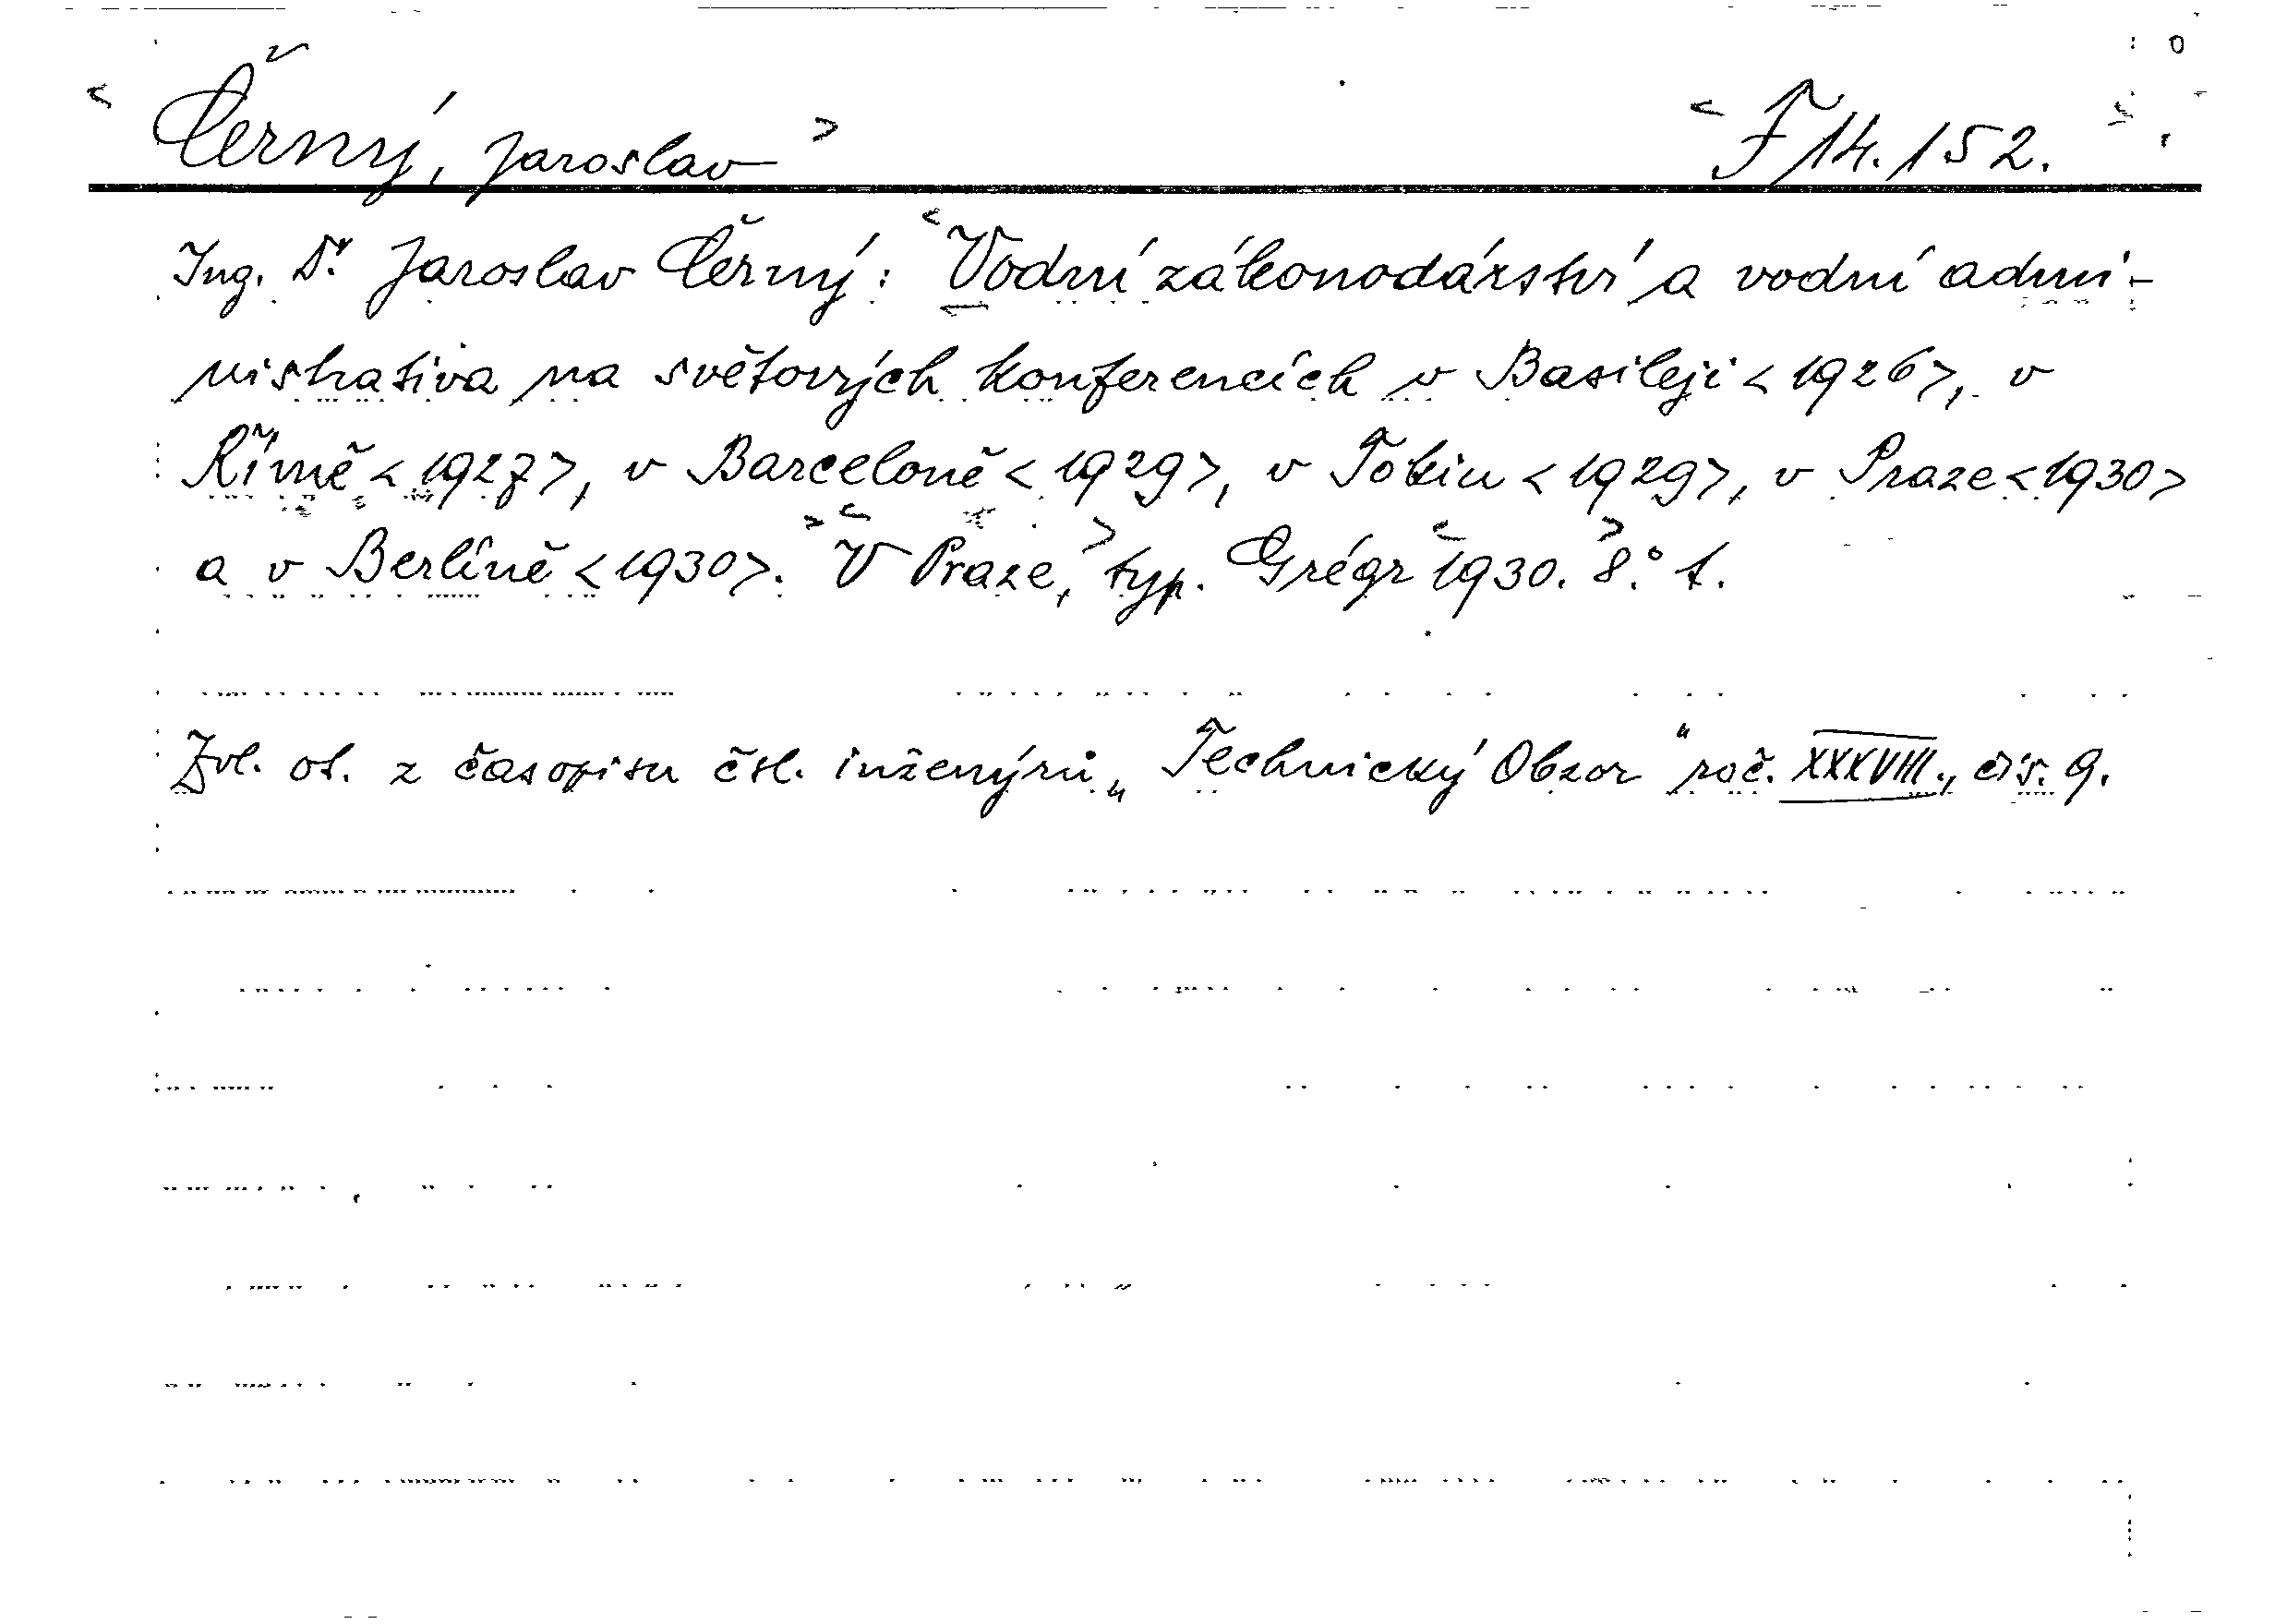 Černý, Jaroslav F 14.152.
Ing. Dr. Jaroslav Černý: Vodní zákonodárství a vodní admi-
nistrativa na světových konferencích v Basileji <1926>, v
Římě <1927>, v Barceloně <1929>, v Tokiu <1929>, v Praze <1930>
a v Berlíně <1930>. V Praze, typ. Grégr 1930. 8.° 1.
Zvl. ot. z časopisu čsl. inženýrů „Technický Obzor“ roč. XXXVIII., čís. 9.